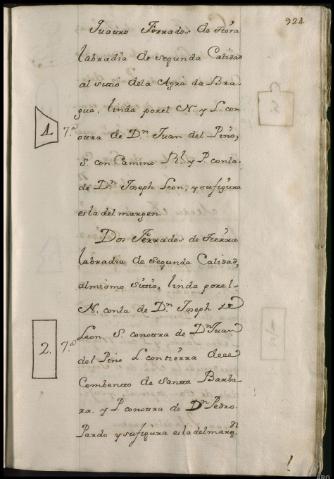 924
Quatro Ferrados de tierra
labradia de segunda Calidad
al sitio dela Agra da Bra
gua, linda por el N. y L. con
1. 7.ª otra de D.n Juan del Pino,
S. con Camino Rl. y P. con la
de D.n Joseph Leon, y su figura
es la del margen
Dos Ferrados de tierra
labradia de segunda Calidad,
al mismo sitio, linda por el
N. con la de D.n Joseph
Leon, S. con otra de D.n Juan
2. 7.ª del Pino L. con tierra del
Combento de Santa Barba
ra, y P. con otra de D.n Pedro
Pardo y su figura es la del marg.n